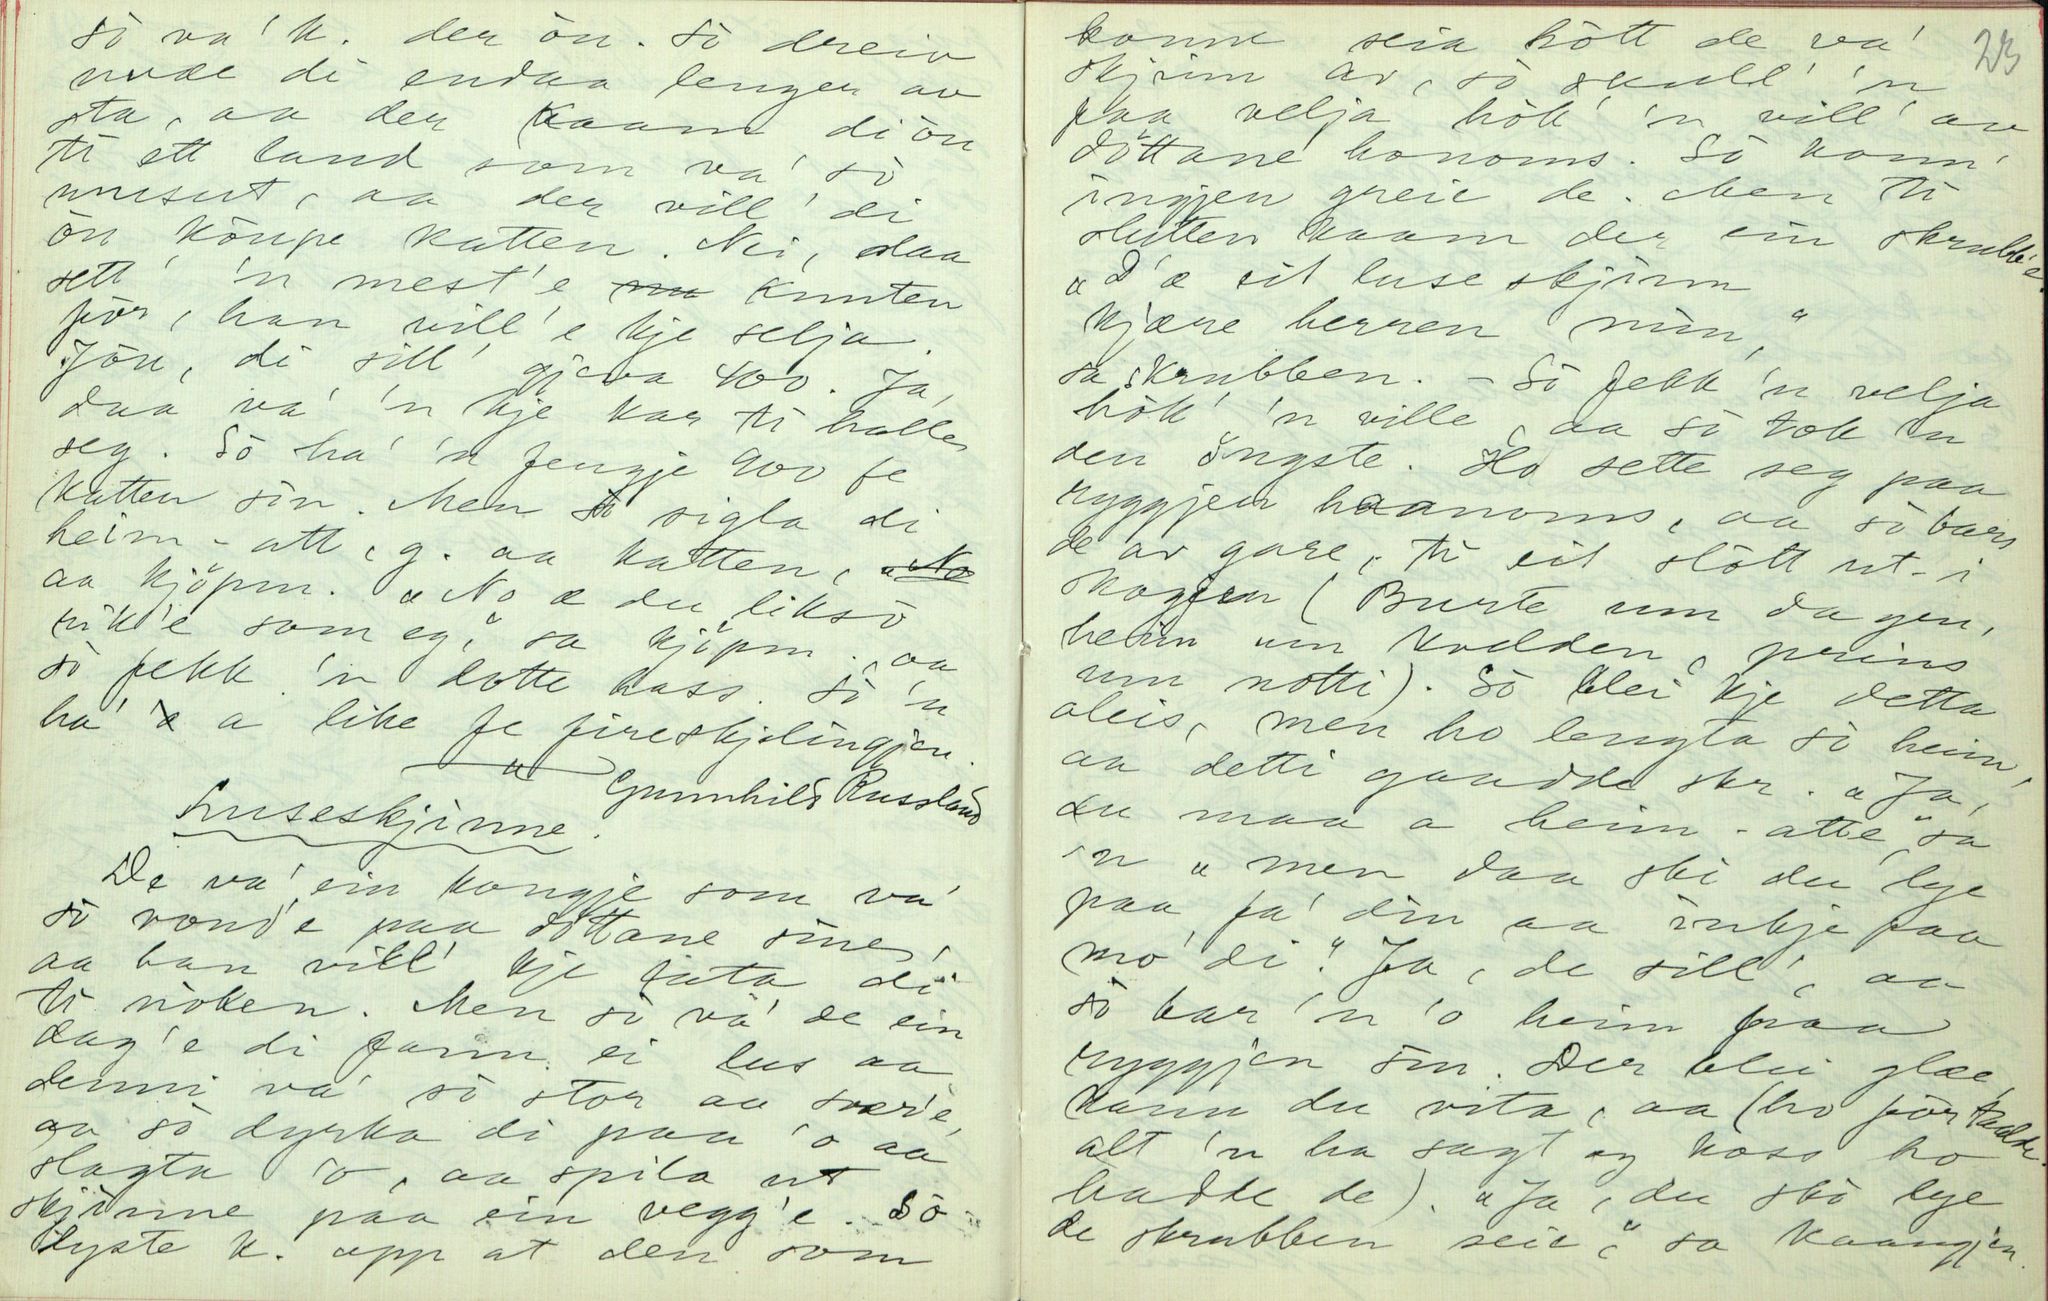 sò va' k. der òn. Sò dreiv
nude di endaa lenger av
sta, aa der kaam di òn
ti ett land som va' sò
musut, aa der vill' di
òn kòupe katten. Nei, daa
sett' 'n mest'e knuten
fòr, han vill'e kje selja.
Jòu, di sill' gjeva 400. Ja,
daa va' 'n kje kar ti halle
seg. Sò ha' 'n fengje 900 fe
katten sin. Men sò sigla di
heim-att, g. aa katten,
aa kjöpm. „No æ du liksò
rik'e som eg," sa kjöpm., aa
sò fekk 'n dotte hass. Sò 'n
ha' a like fe fireskjelingjen.
Gunnhild Russland
Luseskjinne.
De va' ein kongje som va'
sò vond'e paa dòttane sine,
aa han vill' kje lata di
ti nòken. Men sò va' de ein
dag'e di fann ei lus aa
denni va' sò stor aa svær'e,
aa sò dyrka di paa 'o aa
slagta 'o, aa spila ut
skjinne paa ein vegg'e. Sò
lyste k. upp at den som
23
konne seia hòtt de va'
skjinn av, sò skull' 'n
faa velja hòk' 'n vill' av
dòttane honoms. Sò konn'
ingjen greie de. Men ti
slutten kaam der ein skrubb'e.
„D'æ eit luseskjinn
kjære herren min,"
sa skrubben. – Sò fekk 'n velja
hòk' 'n ville, aa sò tok 'n
den òngste. Ho sette seg paa
ryggjen haanoms, aa sò bars
de av gare, ti eit slòtt ut-i
skogjen (Burte um dagen,
heim um kvelden, prins
um notti). Sò blei kje detta
aleis, men ho lengta sò heim,
aa detti gaadde skr. „Ja,
du maa a heim-atte," sa
'n „men daa ski du lye
paa fa' din aa inkje paa
mo' di." Ja, de sill', aa
sò bar 'n 'o heim paa
ryggjen sin. Der blei glæe,
kann du vita, aa (ho fòrtaalde
alt 'n ha sagt og koss ho
hadde de). „Ja, du ska lye
de skrubben seie," sa kaangjen.